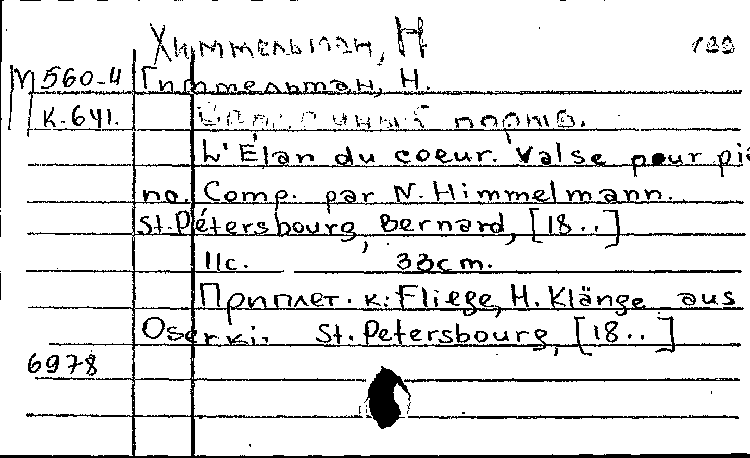 Химмельман, Н
133
М560-4 Гиммельман, Н.
К.641. порыв.
L'Élan du coeur. Valse pour pia
no. Comp. par N. Himmelmann.
St.Pétersbourg, Bernard, [18..]
11с. 33cm.
Приплет. к: Fliege, H. Klänge aus
Oserki. St.Petersbourg, [18..]
6978